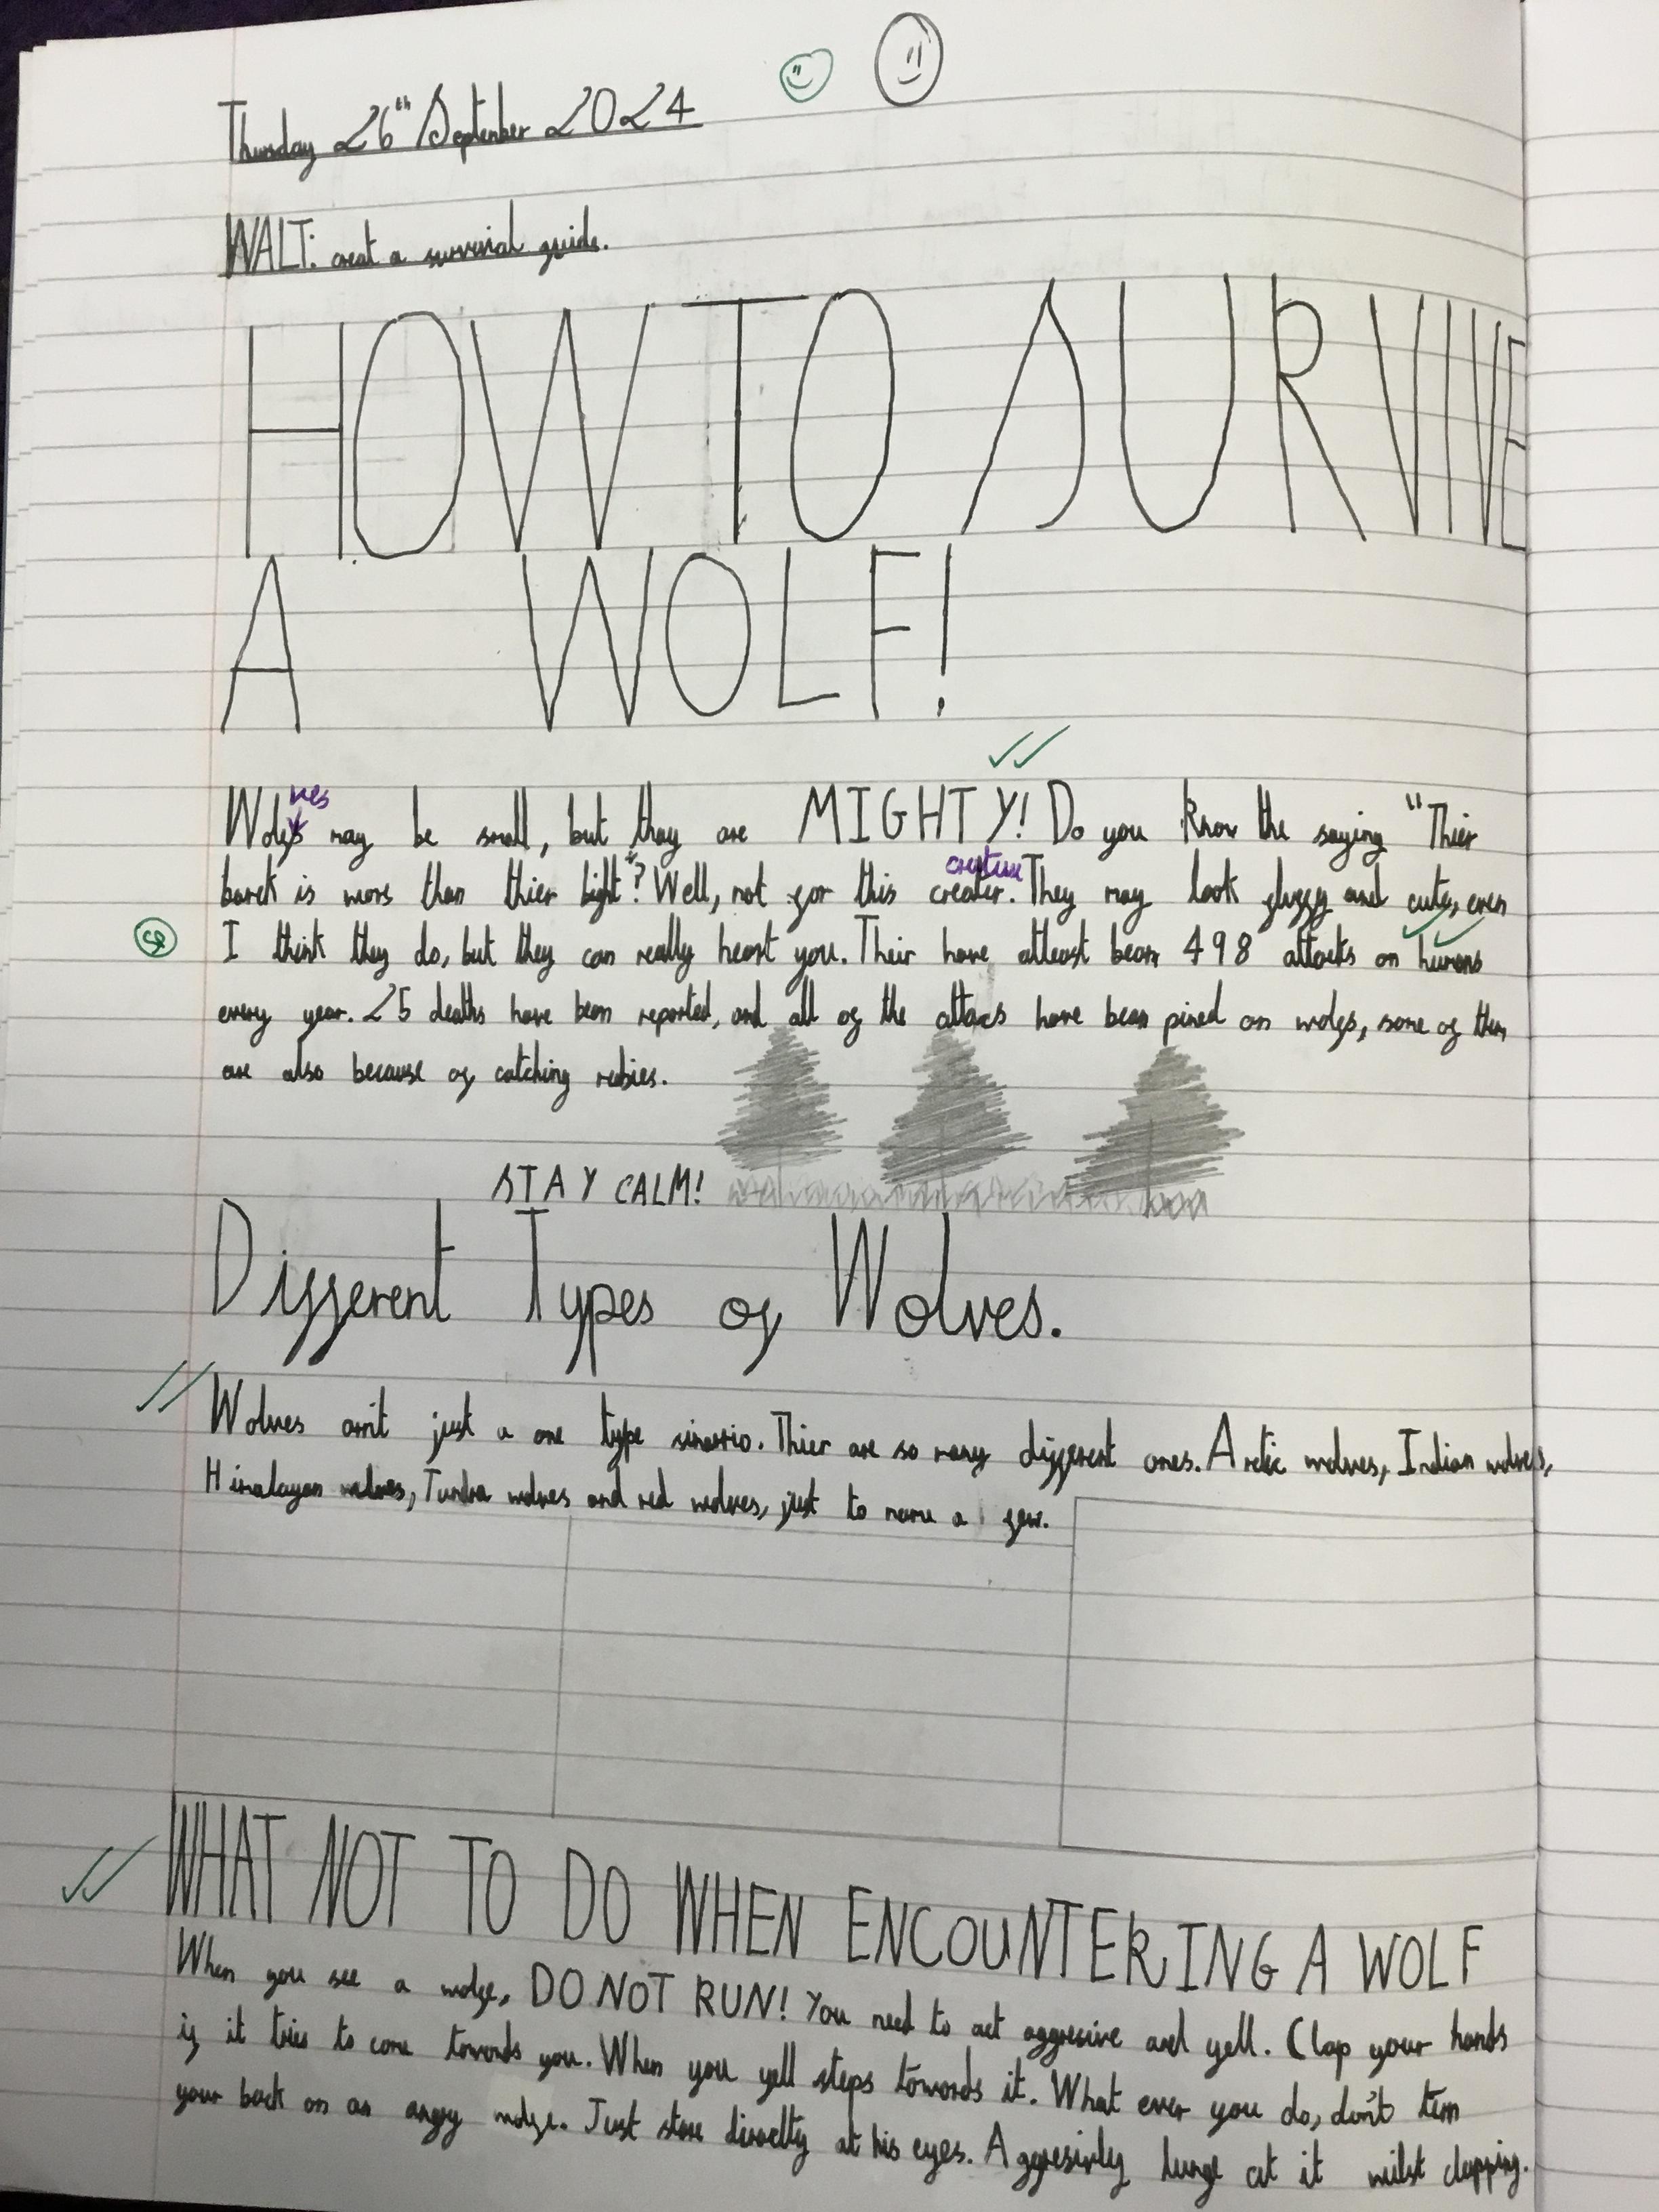 Thursday 26th September 2024
WALT: creat a survival guide.
HOW TO SURVIVE
A WOLF!
ves
Wolfs may be small, but they are MIGHTY! Do you know the saying "Thier
barck is wors than thier bight"? Well, not for this creater. They may look fluffy and cute, even
creature
sp
I think they do, but they can really heart you. Their have atleast bean 498 attacks on humans
every year. 25 deaths have been reported, and all of the attacs have been pined on wolfs, some of them
are also because of catching rabies.
STAY CALM!
Different Types of Wolves.
Wolves arn't just a one type sinario. Thier are so many different ones. Arctic wolves, Indian wolves,
Himalayan wolves, Tundra wolves and red wolves, just to name a few.
WHAT NOT TO DO WHEN ENCOUNTERING A WOLF
When you see a wolf, DO NOT RUN! You need to act aggresive and yell. Clap your hands
if it tries to come towards you. When you yell steps towards it. What ever you do, don't turn
your back on an angry wolf. Just stare directly at his eyes. Aggresivly lunge at it wilst clapping.